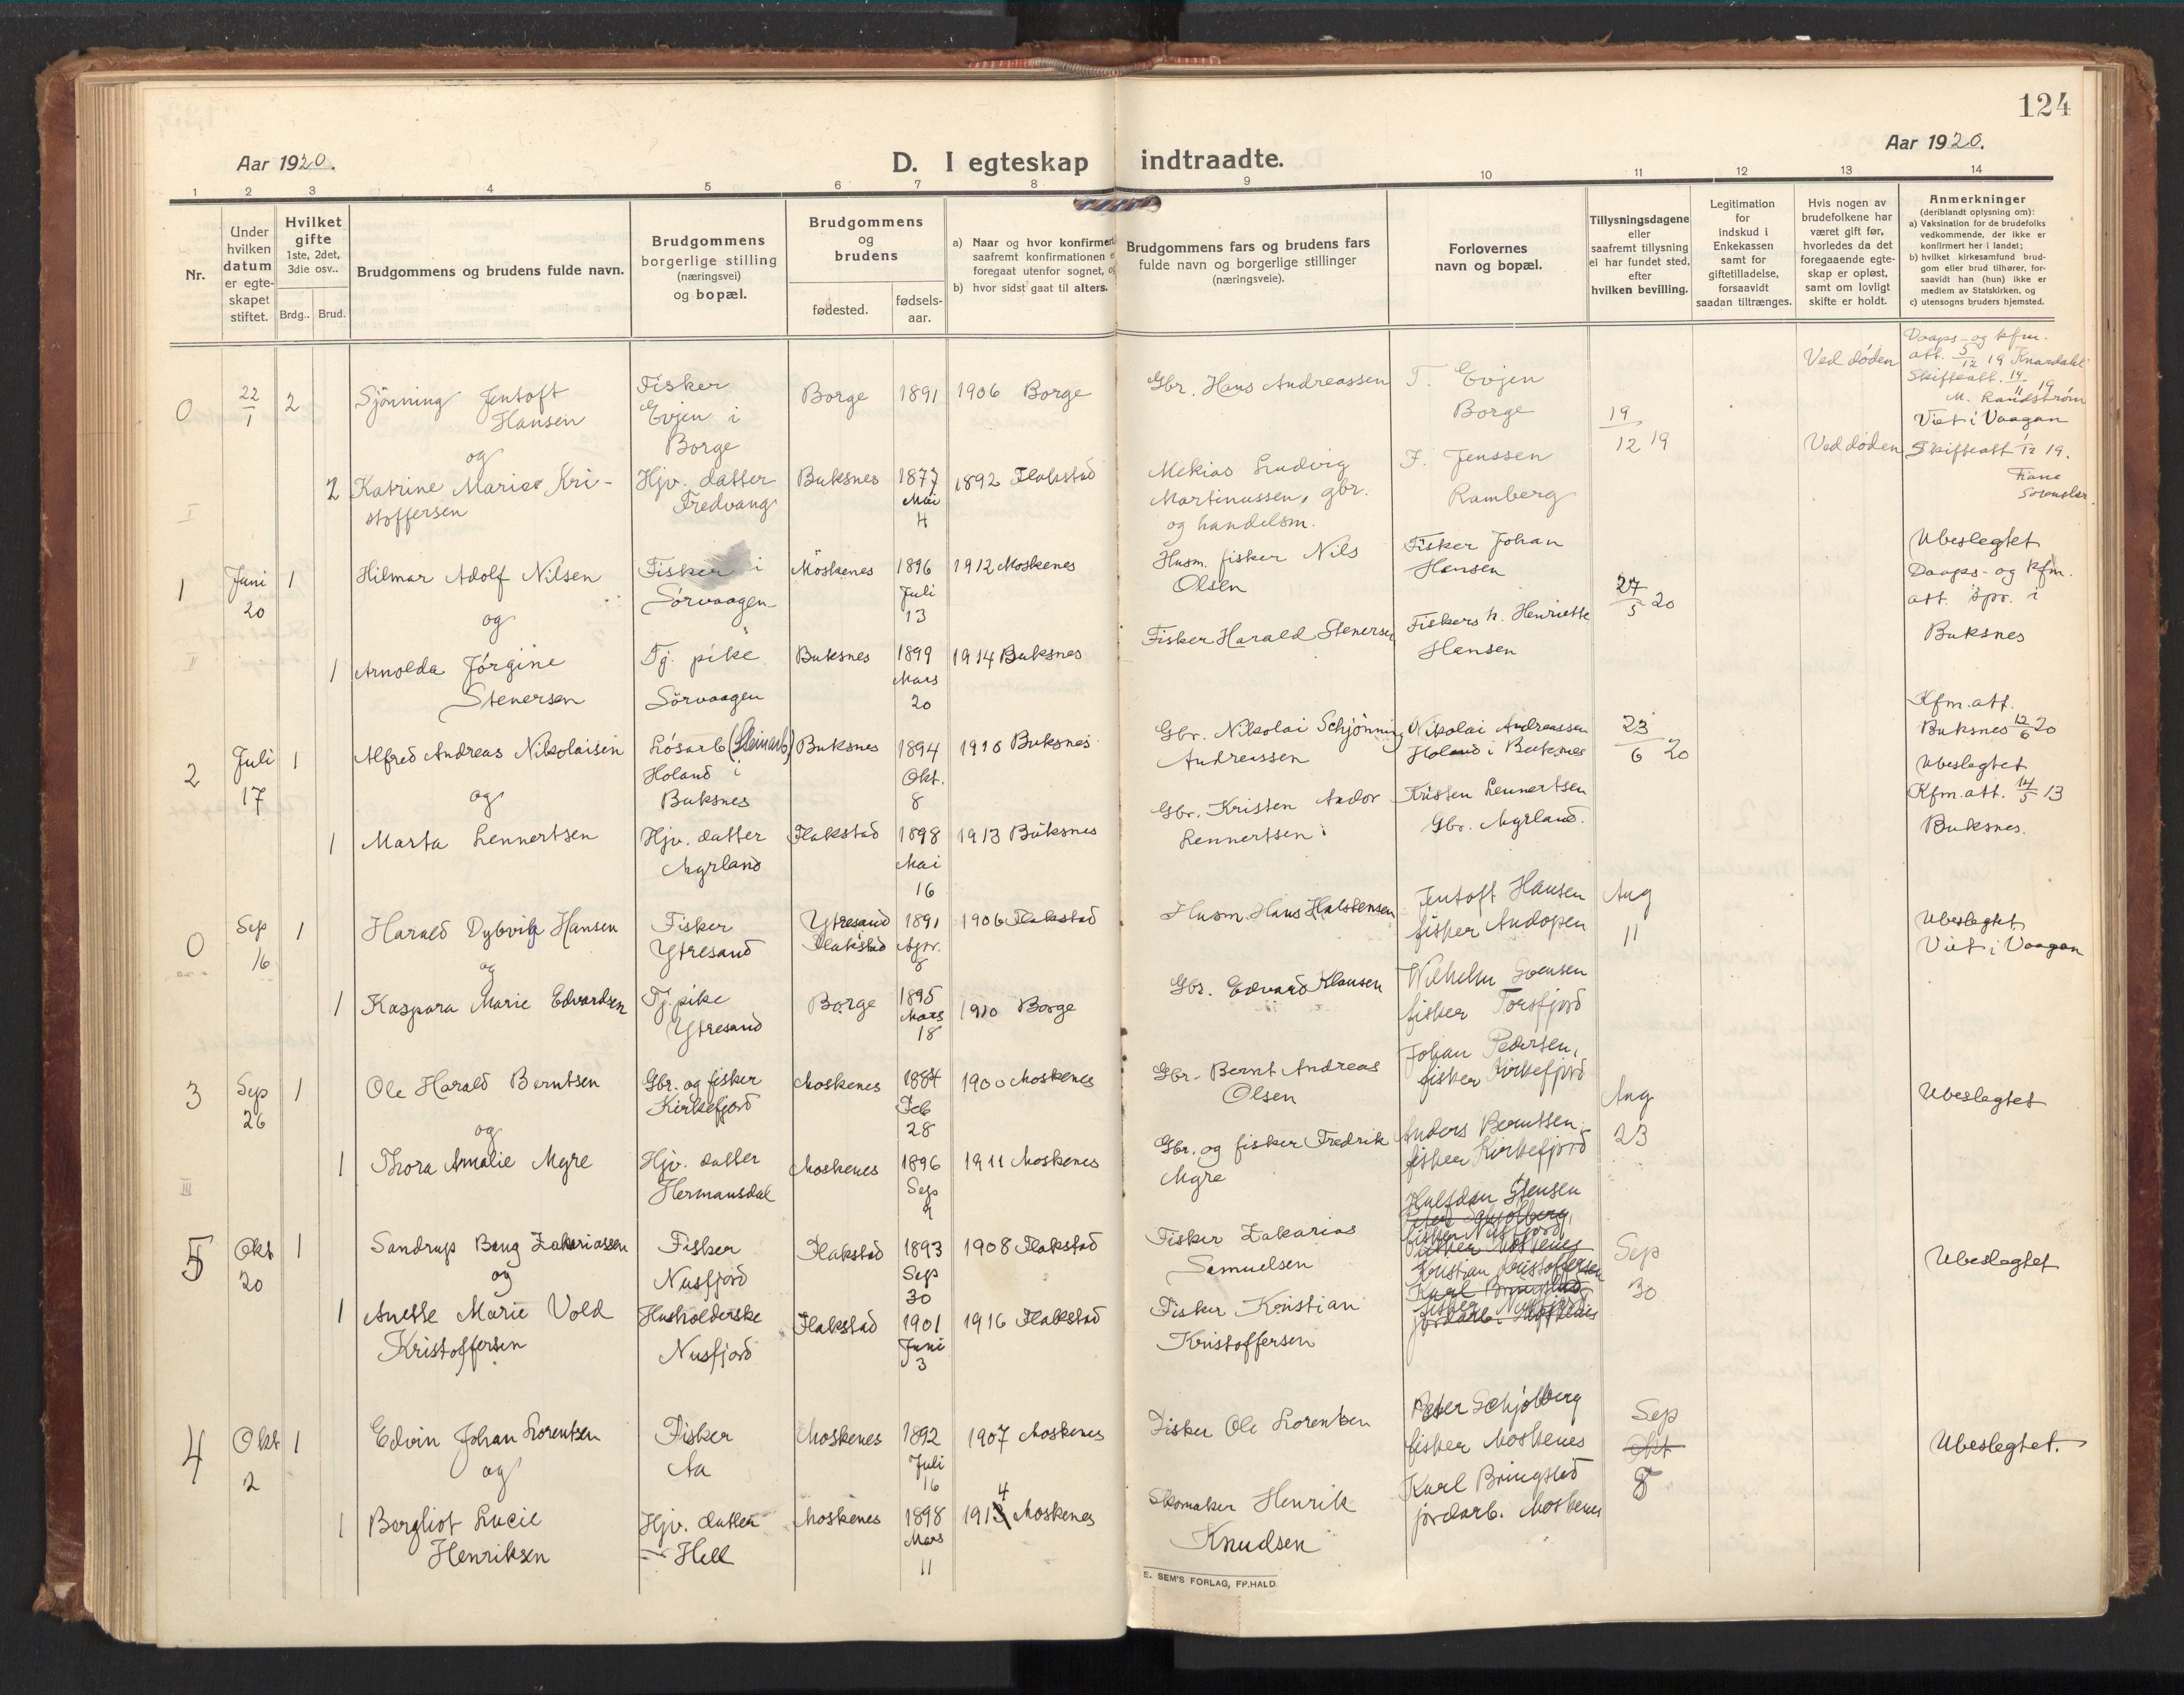 124
Aar 1920.
D. I egteskap indtraadte.
Aar 1920.
1 2 3 4 5 6 7 8 9 10 11 12 13 14
Nr.
Under hvilken datum er egteskapet stiftet.
Hvilket gifte 1ste, 2det, 3die osv..
Brdg.. Brud.
Brudgommens og brudens fulde navn.
Brudgommens borgerlige stilling (næringsvei) og bopæl.
Brudgommens og brudens
fødested.
fødsels-aar.
a) Naar og hvor konfirmert
saafremt konfirmationen e
foregaat utenfor sognet, o
b) hvor sidst gaat til alters.
Brudgommens fars og brudens fars
fulde navn og borgerlige stillinger
(næringsveie).
Forlovernes
navn og bopæl.
Tillysningsdagene
eller
saafremt tillysning
ei har fundet sted,
efter
hvilken bevilling.
Legitimation
for
indskud i
Enkekassen
samt for
giftetilladelse,
forsaavidt
saadan tiltrænges.
Hvis nogen av
brudefolkene har
været gift før,
hvorledes da det
foregaaende egte-
skap er opløst,
samt om lovligt
skifte er holdt.
Anmerkninger
(deriblandt oplysning om):
a) Vaksination for de brudefolks
vedkommende, der ikke er
konfirmert her i landet;
b) hvilket kirkesamfund brud-
gom eller brud tilhører, for-
saavidt han (hun) ikke er
medlem av Statskirken, og
c) utensogns bruders hjemsted.
0 22/1 2 Sjönning Jentoft Hansen
og
Fisker Evjen i Borge
Borge 1891 1906 Borge
Gbr. Hans Andreassen
T. Evjen Borge
19/12 19
Ved döden
Daaps- og kfm. att. 5/12 19 Knardahl
Skifteatt. 14/11 19
Viet i Vaagan
2 Katrine Marie Kri-
stoffersen
Hjv. datter Fredvang
Buksnes 1877 Mai 4 1892 Flakstad
Mekias Ludvig
Martinussen, gbr.
og handelsm.
F. Jenssen Ramberg
Ved döden
Skifteatt 1/12 19.
I
1 Juni 20 1 Hilmar Adolf Nilsen
og
Fisker i Sörvaagen
Moskenes 1896 Juli 13 1912 Moskenes
Husm. fisker Nils Olsen
Fisker Johan Hansen
27/5 20
Ubeslegtet
Daaps- og kfm. att. spr. i Buksnes
II
1 Arnolda Jörgine Stenersen
Tj. pike Sörvaagen
Buksnes 1899 Mars 20 1914 Buksnes
Fisker Harald Stenersen
Fiskers h. Henriette Hansen
2 Juli 17 1 Alfred Andreas Nikolaisen
og
Lösarb (Steinarb) Holand i Buksnes
Buksnes 1894 Okt. 8 1910 Buksnes
Gbr. Nikolai Schjönning Andreassen
Nikolai Andreassen Holand i Buksnes
23/6 20
Kfm. att. Buksnes 12/6 20
Ubeslegtet
1 Marta Lennertsen
Hjv. datter Myrland
Flakstad 1898 Mai 16 1913 Buksnes
Gbr. Kristen Andor Lennertsen
Kristen Lennertsen Gbr. Myrland.
Kfm. att. 14/5 13 Buksnes.
0 Sep 16 1 Harald Dybvik Hansen
og
Fisker Ytresand
Ytresand Flakstad 1891 Apr. 8 1906 Flakstad
Husm. Hans Halstensen
Jentoft Hansen fisker Andopen
Aug 11
Ubeslegtet
Viet i Vaagan
1 Kaspara Marie Edvardsen
Tj. pike Ytresand
Borge 1895 Mars 18 1910 Borge
Gbr. Edvard Klausen
Wilhelm Svensen fisker Torsfjord
3 Sep 26 1 Ole Harald Berntsen
og
Gbr. og fisker Kirkefjord
Moskenes 1884 Feb 28 1900 Moskenes
Gbr. Bernt Andreas Olsen
Johan Pedersen, fisker Kirkefjord
Aug 23
Ubeslegtet
III
1 Thora Amalie Myre
Hjv. datter Hermansdal
Moskenes 1896 Sep 9 1911 Moskenes
Gbr. og fisker Fredrik Myre
Anders Berntsen. fisker Kirkefjord
5 Okt 20 1 Sandrup Bang Zakariassen
og
Fisker Nusfjord
Flakstad 1893 Sep 30 1908 Flakstad
Fisker Zakarias Samuelsen
Halfdan Stensen
Peter Schjölberg,
fisker Nusfjord
fisker Moskenes
Sep 30
Ubeslegtet
1 Anette Marie Vold Kristoffersen
Husholderske Nusfjord
Flakstad 1901 Juni 3 1916 Flakstad
Fisker Kristian Kristoffersen
Kristian Kristoffersen
Karl Bringslid
fisker Nusfjord
jordarb. Moskenes
4 Okt 2 1 Edvin Johan Lorentsen
og
Fisker Aa
Moskenes 1892 Juli 16 1907 Moskenes
Fisker Ole Lorentsen
Peter Schjölberg fisker Moskenes
Sep
Okt
8
Ubeslegtet.
1 Bergliot Lucie Henriksen
Hjv. datter Hell
Moskenes 1898 Mars 11 1914 Moskenes
Skomaker Henrik Knudsen
Karl Bringslid jordarb. Moskenes
E. SEM'S FORLAG, FR.HALD.